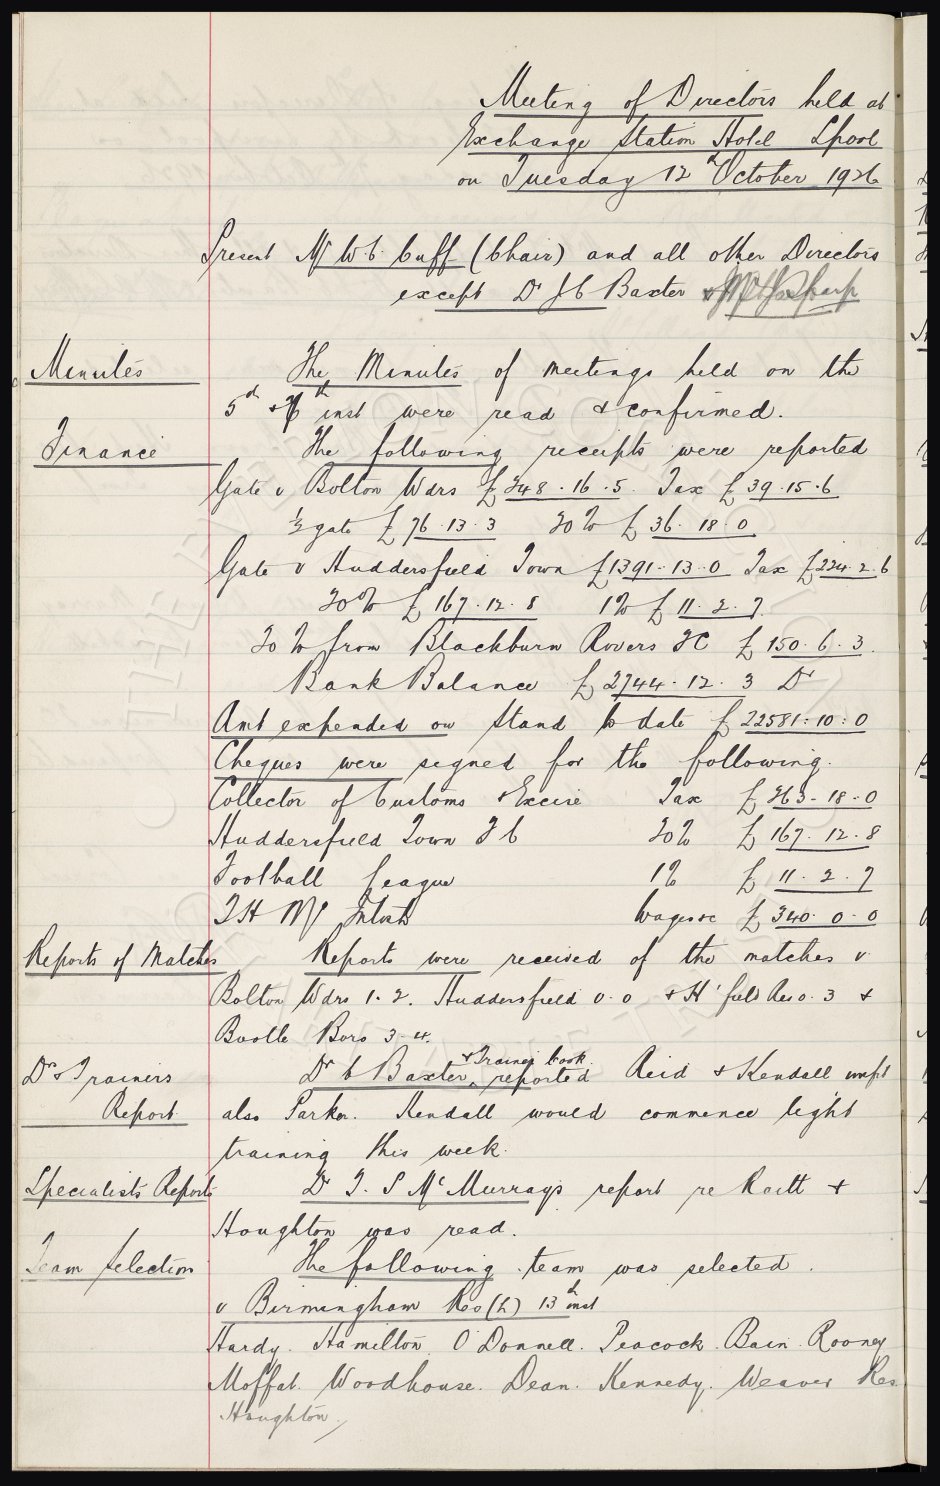 Meeting of Directors held at
Exchange Station Hotel Lpool
on Tuesday 12th October 1926
Present Mr W C Cuff (Chair) and all other Directors
except Dr J C Baxter & Mr Sharp
Minutes The Minutes of meetings held on the
5th & inst were read & confirmed.
Finance The following receipts were reported
Gate v Bolton Wdrs £348.16.5. Tax £39.15.6
½ gate £76.13.3 20% £36.18.0
Gate v Huddersfield Town £1391.13.0 Tax £224.2.6
20% £167.12.8 1% £11.2.7.
20% from Blackburn Rovers FC £150.6.3.
Bank Balance £2744.12.3 Dr
Amt expended on Stand to date £22581:10:0
Cheques were signed for the following.
Collector of Customs & Excise Tax £263-18-0
Huddersfield Town F C 20% £167.12.8
Football League 1% £11.2.7
T H McIntosh Wages &c £340.0.0
Reports of Matches Reports were received of the matches v
Bolton Wdrs 1-2. Huddersfield 0.0 & H'field Res 0.3 &
Bootle Boro 3-4.
Drs & Trainers Dr C Baxter & Trainer Cook reported Reid & Kendall unfit
Report also Parker. Kendall would commence light
training this week.
Specialists Reports Dr T. S McMurray's report re Raitt &
Houghton was read.
Team Selection The following team was selected.
v Birmingham Res (h) 13th inst
Hardy. Hamilton. O'Donnell. Peacock. Bain. Rooney
Moffat. Woodhouse. Dean. Kennedy. Weaver Res
Houghton